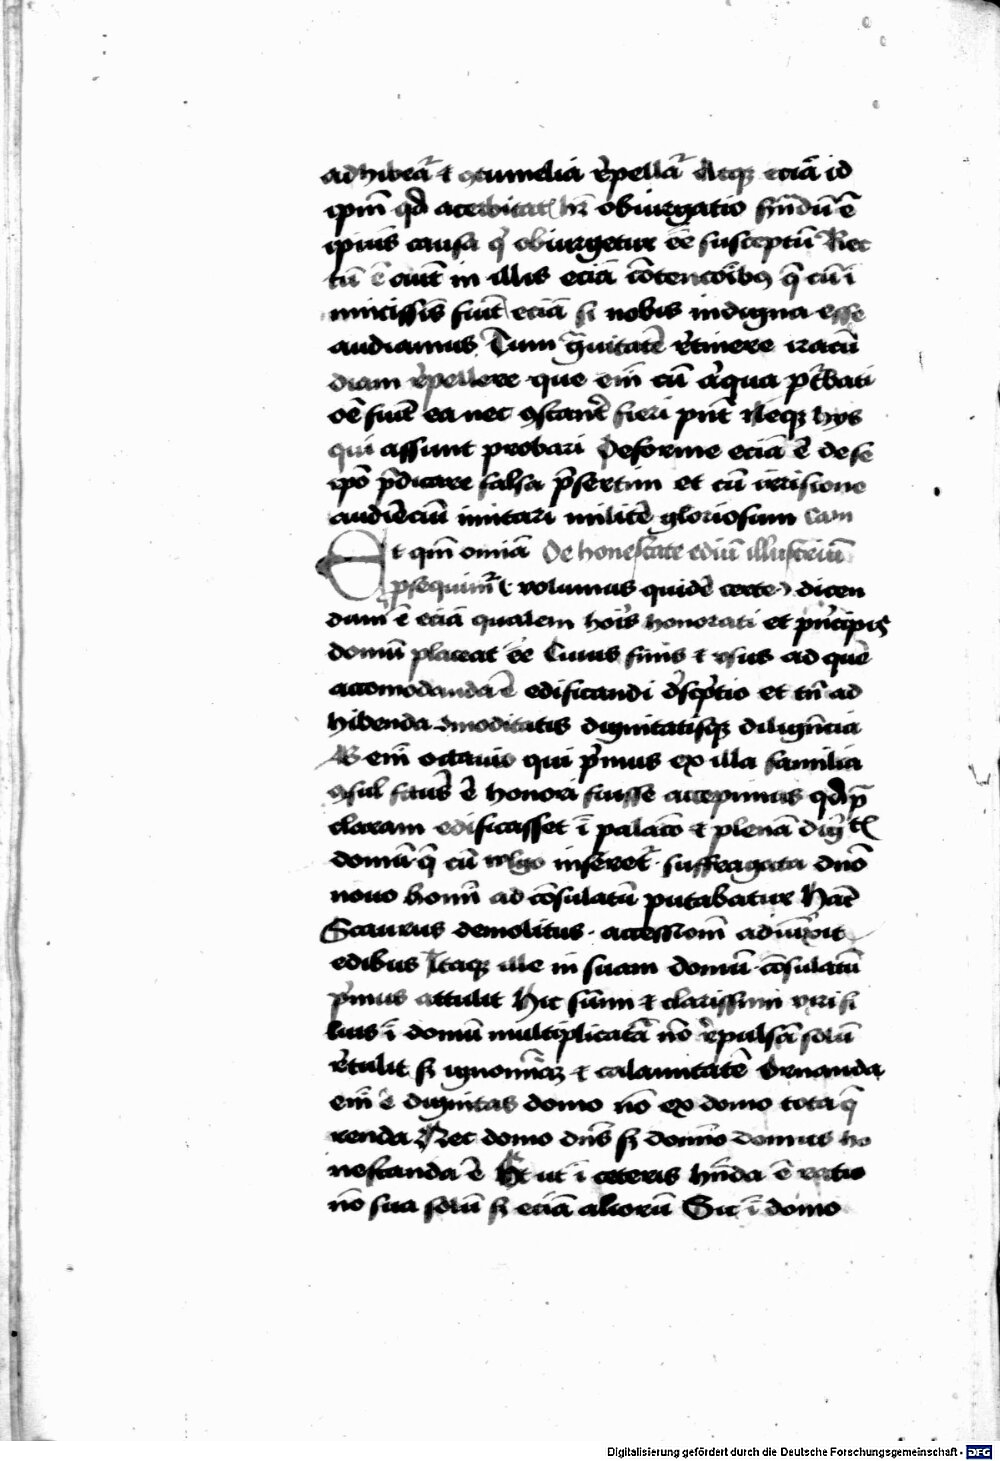 adhibeat᷑ ⁊ ꝯtumelia rͤpellat᷑ Atqꝫ eciā id
ip̄m qd̄ acerbitatꝭ hꝫ obiurgatio sig̅ndū ē
ipius causa qͥ obiurgetur eē susceptū Rec
tū ē aut̄ in illis eciā cōtencōibꝫ q̄ cū i
nimicissīs fiūt eciā si nobis indigna esse
audiamus Tum gͣuitatē rͤtinere iracū
diam rͤpellere que em̄ cū aͥqua ꝑtͬbati
oē fiūt ea nec ꝯstant᷑ fieri pn̄t Neqꝫ hys
qui assunt probari Deforme eciā ē de se
ip̄o p̄dicare falsa p̄sertim et cū irrisione
audiēciū imitari militē gloriosum Cam
Et qm̄ omīa De honestate ediū illustrium
ꝑsequim᷑ ( volumus quidē certe ) dicen
dum ē eciā qualem hoīs honorati et pͥncipis
domū placeat eē Cuius finis ⁊ vsus ad quē
accomodanda ē edificandi dͤscͥptio et tn̄ ad
hibenda ꝯmoditatis dignitatisqꝫ diligēncia
Cn em̄ octauio qui pͥmus ex illa familia
ꝯsul factus ē honori fuisse accepimus qd̄ p̄
claram edificasset ī palacō ⁊ plenā dig̅tꝭ
domū q̄ cū vulgo inseret᷑ suffragata dn̄o
nouo homī ad cōsulatū putabatur Hāc
Scaurus demolitus accessionē adiūxit
edibus Itaqꝫ ille in suam domū cōsulatū
pͥmus attulit Hic sūmi ⁊ clarissimi viri fi
lius ī domū multiplicatā nō rͤpulsā solū
rͤtulit sꝫ ignomīaꝫ ⁊ calamitatē Ornanda
em̄ ē dignitas domo nō ex domo tota q̄
renda Nec domo dn̄s sꝫ domīo domus ho
nestanda ē Et ut ī ceteris hn̄da ē ratio
nō sua solū sꝫ eciā aliorū Sic ī domo
Digitalisierung gefördert durch die Deutsche Forschungsgemeinschaft - DFG